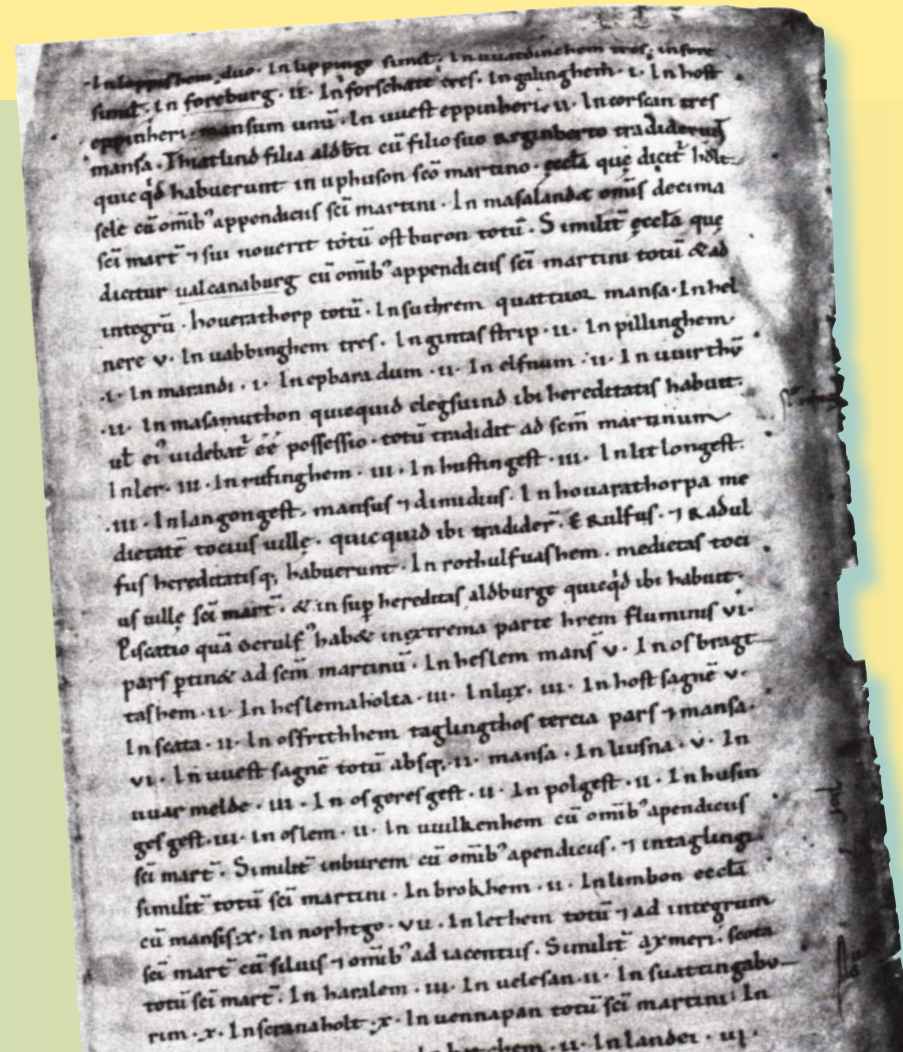 In loppishem duo. In lippinge simt. In uuardinehem tres; in fore
simt. In foreburg. ii. In forschate tres. In galinghem. i. In host
eppinheri. mansum unū. In uuest eppinheri. ii. In corscan tres
mansa. Thiatlind filia aldbti cū filio suo reginberto tradiderunt
quicqd habuerunt in uphuson sco martino. eccla que dicit holt
sele cū omib' appendiciis sci martini. In masalande omis decima
sci mart 7 siu nouerit totū ostburon totū. Similit eccla que
dicitur ualcanaburg cū omib' appendiciis sci martini totū & ad
integrū. houerathorp totū. In suthrem quattuor mansa. In hel
nere v. In uabbinghem tres. In gintas strip. ii. In pillinghem
.i. In marandi. i. In ephara dum. ii. In elfnum. ii. In uuurthū
.ii. In masamuthon quicquid elegsuind ibi hereditatis habuit.
ut ei' uidebat ee possessio. totū tradidit ad scm martinum
In ler. iii. In rufinghem. iii. In hustingest. iii. In lit longest.
.iii. In langongest. mansus 7 dimidius. In houarathorpa me
dietatē tocius uille. quicquid ibi tradider. Erulfus. 7 Radul
fus hereditatisq; habuerunt. In rothulfuashem. medietas toci
us uille sci mart. & in sup hereditas aldburge quicqd ibi habuit.
Piscatio quā gerulf' hab& in extrema parte hrem fluminis vi.
pars ptin& ad scm martinū. In heslem mans v. In osbragt
tashem. ii. In heslemaholta. iii. In lux. iii. In host sagnē v.
In scata. ii. In osfrithhem taglingthos tercia pars 7 mansa.
vi. In uuest sagnē totū absq; ii. mansa. In liusna. v. In
nuar melde. iii. In osgeresgest. ii. In polgest. ii. In husin
gesgest. iii. In oslem. ii. In uuilkenhem cū omib' apendiciis
sci mart. Similit inburem cū omib' apendiciis. 7 in taglingi
similit totū sci martini. In brokhem. ii. In limbon eccla
cū mansis; x. In norhtgo. vii. In lethem totū 7 ad integrum
sci mart cū siluis 7 omib' ad iacentiis. Similit aymeri. scota
totū sci mart. In haralem. iii. In uelesan. ii. In suattingabu
rim. x. In scranaholt. x. In uennapan totū sci martini. In
hem. ii. In lander. vi.